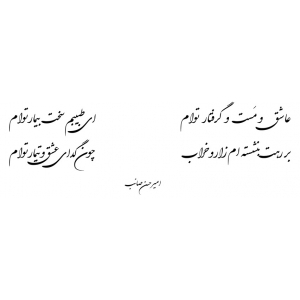 عاشق و مست و گرفتار توام ای طبیبم سخت بیمار توام
بر رهت ننشسته ام زار و خراب چون گدای عشق و تیمار توام
امیرحسن صائب